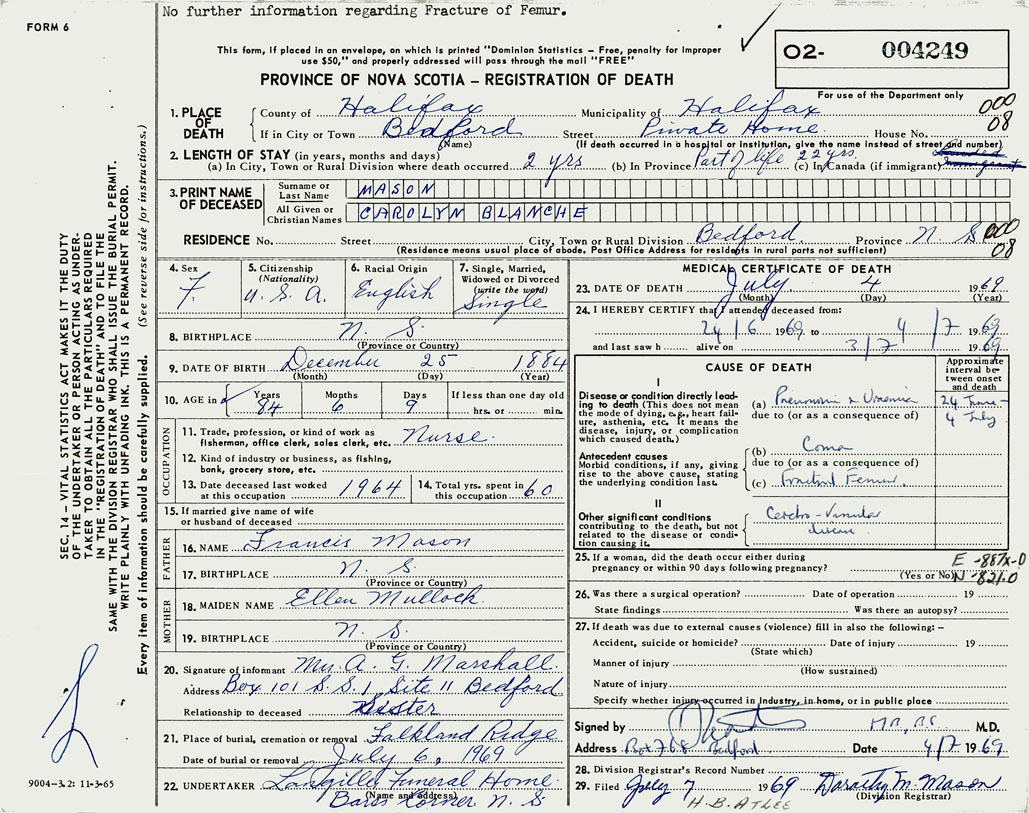 No further information regarding Fracture of Femur.
FORM 6
This form, if placed in an envelope, on which is printed "Dominion Statistics – Free, penalty for improper
use $50," and properly addressed will pass through the mail "FREE"
O2- 004249
PROVINCE OF NOVA SCOTIA – REGISTRATION OF DEATH
For use of the Department only
000
08
1. PLACE OF DEATH
County of Halifax Municipality of Halifax
If in City or Town Bedford Street Private Home House No.
(Name) (If death occurred in a hospital or institution, give the name instead of street and number)
2. LENGTH OF STAY (in years, months and days)
(a) In City, Town or Rural Division where death occurred 2 yrs (b) In Province Part of life 22 yrs. (c) In Canada (if immigrant)
3. PRINT NAME OF DECEASED
Surname or Last Name MASON
All Given or Christian Names CAROLYN BLANCHE
RESIDENCE No. Street City, Town or Rural Division Bedford Province N S
000
08
(Residence means usual place of abode. Post Office Address for residents in rural parts not sufficient)
4. Sex
F.
5. Citizenship
(Nationality)
U. S. A.
6. Racial Origin
English
7. Single, Married,
Widowed or Divorced
(write the word)
Single
8. BIRTHPLACE N. S.
(Province or Country)
9. DATE OF BIRTH December 25 1884
(Month) (Day) (Year)
10. AGE in
Years Months Days If less than one day old
84 6 9 hrs. or min.
OCCUPATION
11. Trade, profession, or kind of work as
fisherman, office clerk, sales clerk, etc. Nurse.
12. Kind of industry or business, as fishing,
bank, grocery store, etc.
13. Date deceased last worked
at this occupation 1964
14. Total yrs. spent in
this occupation 60
15. If married give name of wife
or husband of deceased
FATHER
16. NAME Francis Mason
17. BIRTHPLACE N. S.
(Province or Country)
MOTHER
18. MAIDEN NAME Ellen Mullock.
19. BIRTHPLACE N. S.
(Province or Country)
20. Signature of informant Mrs. A. G. Marshall.
Address Box 101 S.S. 1, Site 11 Bedford
Relationship to deceased Sister
21. Place of burial, cremation or removal Falkland Ridge
Date of burial or removal July 6, 1969
22. UNDERTAKER Langille Funeral Home.
(Name and address)
Bares Corner N. S
MEDICAL CERTIFICATE OF DEATH
23. DATE OF DEATH July 4 1969
(Month) (Day) (Year)
24. I HEREBY CERTIFY that I attended deceased from:
24/6 1969 to 4/7 1969
and last saw h alive on 3/7 1969
CAUSE OF DEATH
Approximate
interval be-
tween onset
and death
I
Disease or condition directly lead-
ing to death (This does not mean
the mode of dying, e.g., heart fail-
ure, asthenia, etc. It means the
disease, injury, or complication
which caused death.)
(a) Pneumonia & Uraemia
due to (or as a consequence of)
24 June -
4 July
Antecedent causes
Morbid conditions, if any, giving
rise to the above cause, stating
the underlying condition last.
(b) Coma
due to (or as a consequence of)
(c) Fractured Femur.
II
Other significant conditions
contributing to the death, but not
related to the disease or condi-
tion causing it.
Cerebro-Vascular
disease
25. If a woman, did the death occur either during
pregnancy or within 90 days following pregnancy?
(Yes or No)
E -887X-0
N -821.0
26. Was there a surgical operation? Date of operation 19
State findings Was there an autopsy?
27. If death was due to external causes (violence) fill in also the following: –
Accident, suicide or homicide? Date of injury 19
(State which)
Manner of injury
(How sustained)
Nature of injury
Specify whether injury occurred in Industry, in home, or in public place
Signed by M.B., B.S. M.D.
Address Box 768 Bedford Date 4/7 1969
28. Division Registrar's Record Number
29. Filed July 7 1969 Dorothy M. Mason
(Division Registrar)
H. B. ATLEE
SEC. 14 – VITAL STATISTICS ACT MAKES IT THE DUTY
OF THE UNDERTAKER OR PERSON ACTING AS UNDER-
TAKER TO OBTAIN ALL THE PARTICULARS REQUIRED
IN THE "REGISTRATION OF DEATH" AND TO FILE THE
SAME WITH THE DIVISION REGISTRAR WHO SHALL ISSUE THE BURIAL PERMIT.
WRITE PLAINLY WITH UNFADING INK. THIS IS A PERMANENT RECORD.
Every item of information should be carefully supplied. (See reverse side for instructions.)
9004-3.2: 11-3-65